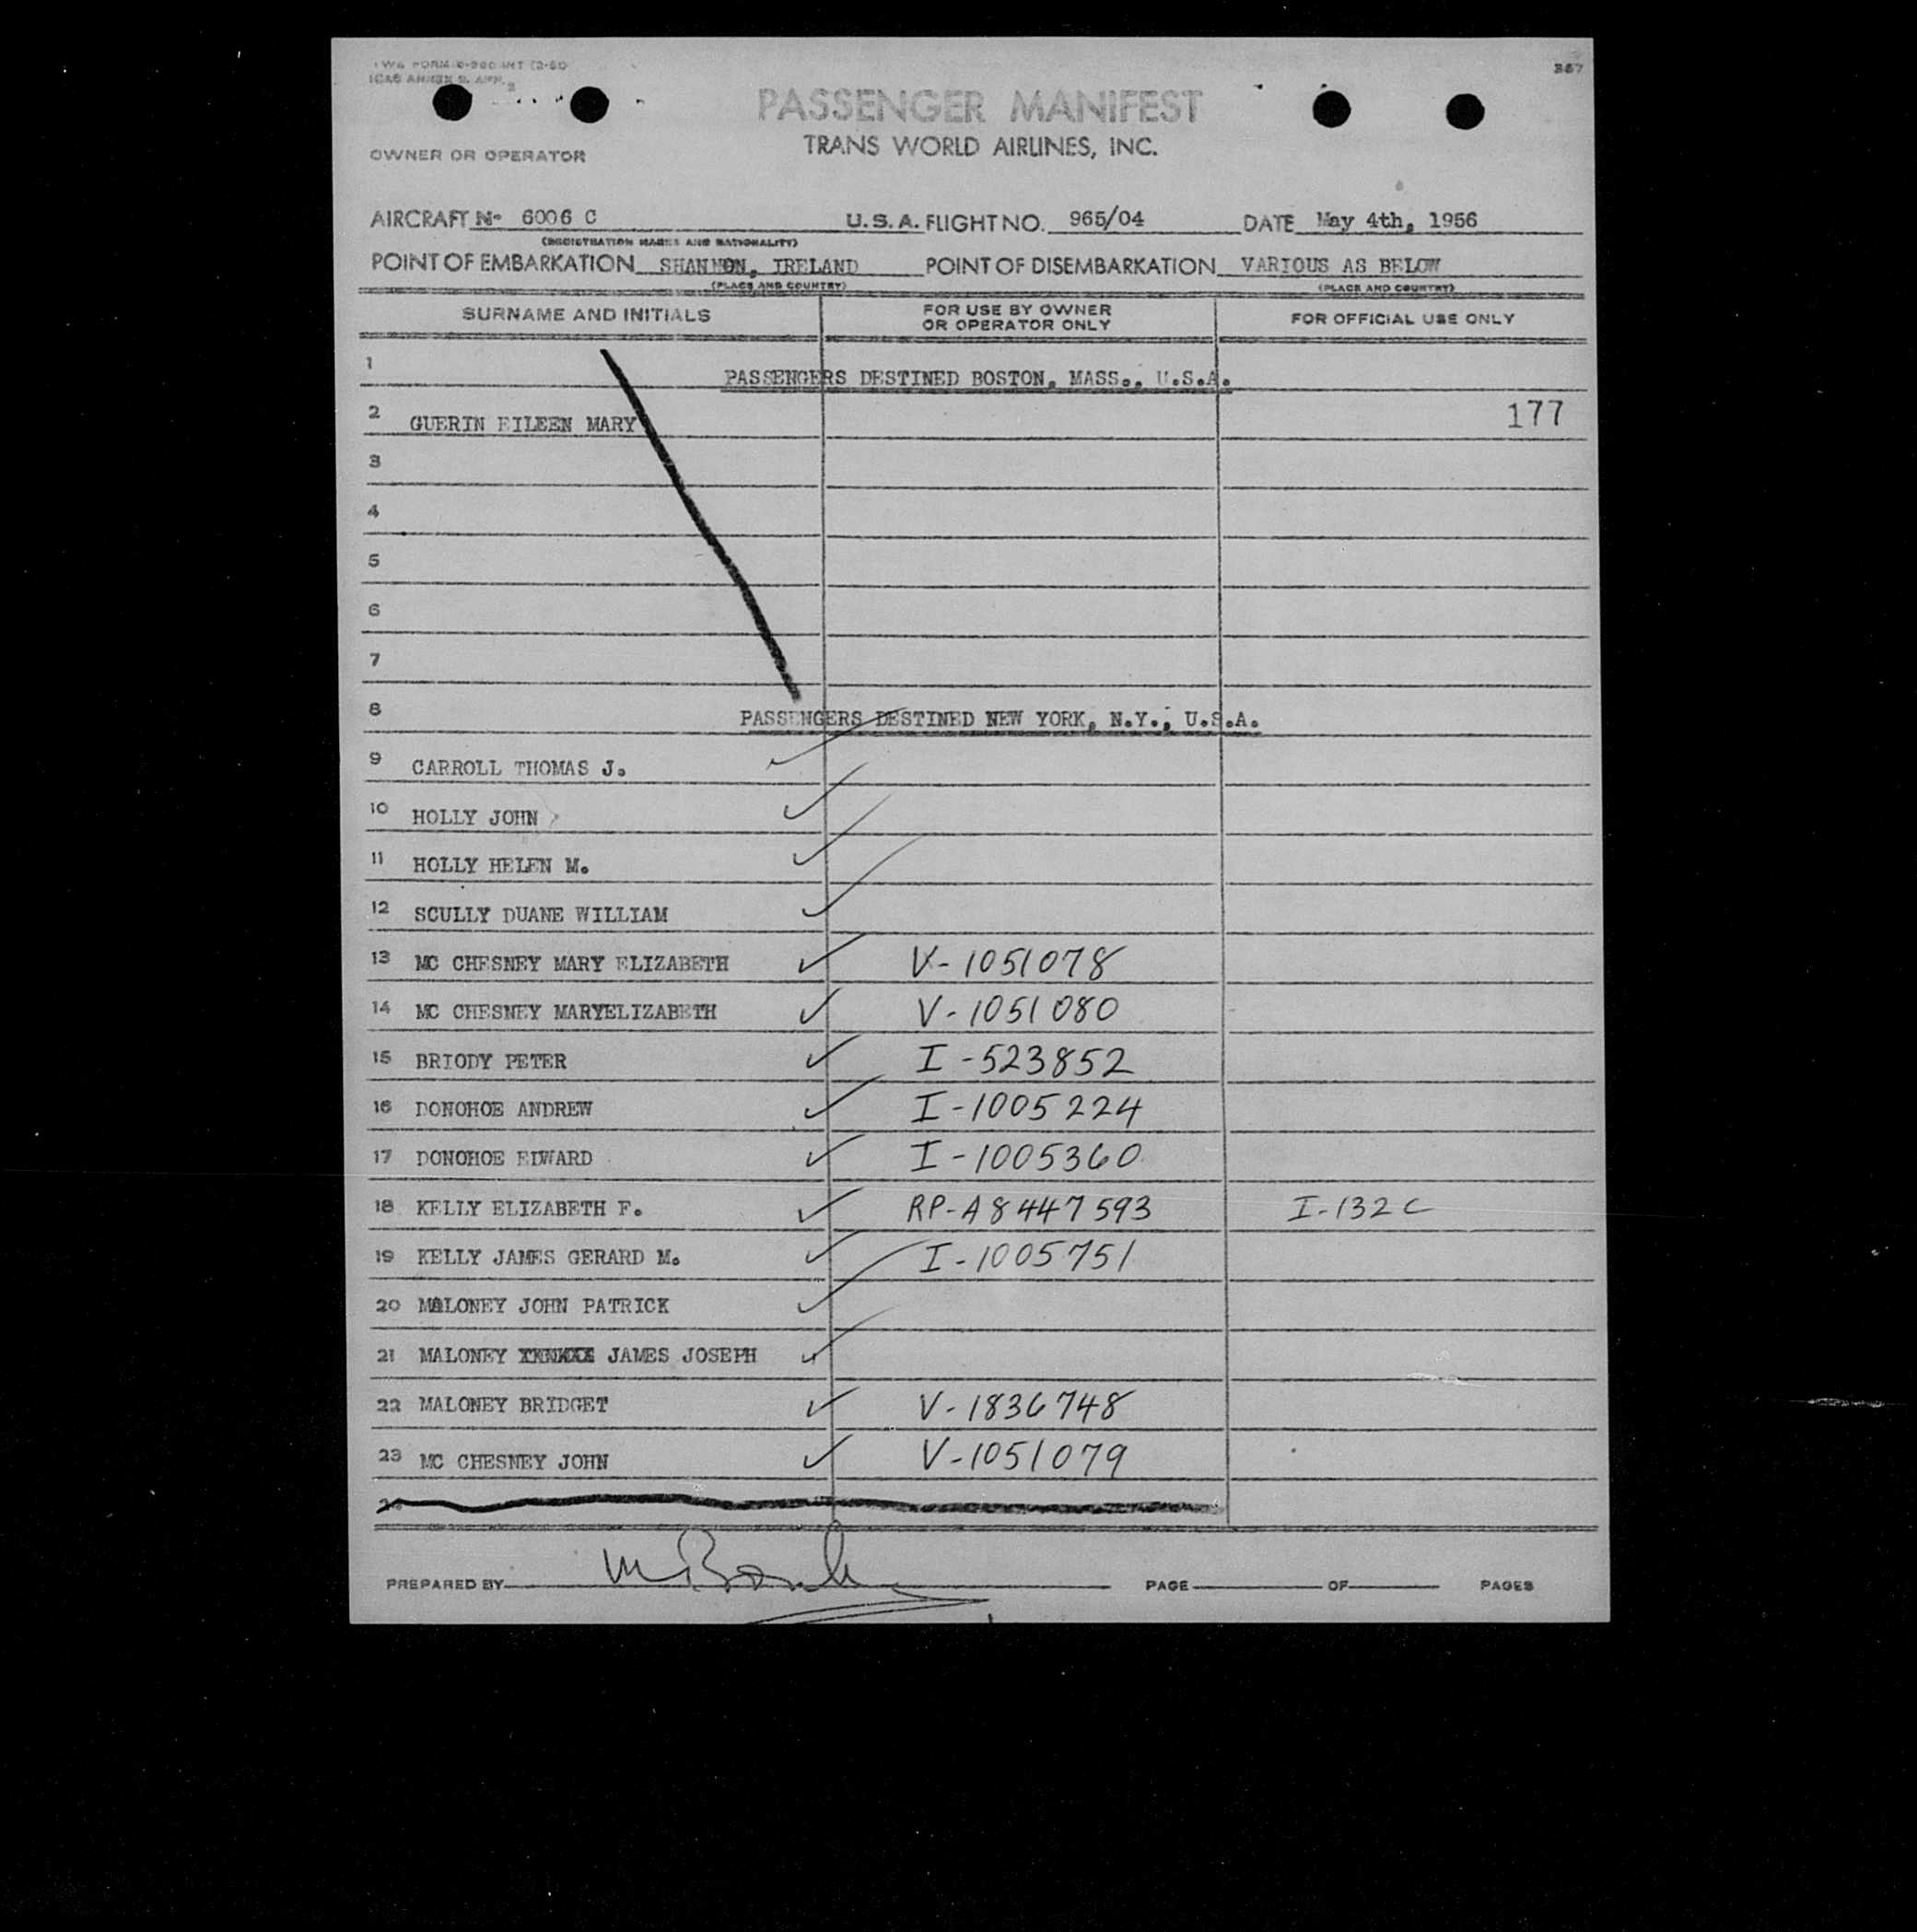 TWA FORM
367
PASSENGER MANIFEST
OWNER OR OPERATOR
TRANS WORLD AIRLINES, INC.
AIRCRAFT N- 6006 C U.S.A. FLIGHT NO. 965/04 DATE May 4th, 1956
(REGISTRATION MARKS AND NATIONALITY)
POINT OF EMBARKATION SHANNON, IRELAND POINT OF DISEMBARKATION VARIOUS AS BELOW
(PLACE AND COUNTRY) (PLACE AND COUNTRY)
SURNAME AND INITIALS FOR USE BY OWNER OR OPERATOR ONLY FOR OFFICIAL USE ONLY
1 PASSENGERS DESTINED BOSTON, MASS., U.S.A.
2 GUERIN EILEEN MARY 177
3
4
5
6
7
8 PASSENGERS DESTINED NEW YORK, N.Y., U.S.A.
9 CARROLL THOMAS J.
10 HOLLY JOHN
11 HOLLY HELEN M.
12 SCULLY DUANE WILLIAM
13 MC CHESNEY MARY ELIZABETH V-1051078
14 MC CHESNEY MARYELIZABETH V-1051080
15 BRIODY PETER I-523852
16 DONOHOE ANDREW I-1005224
17 DONOHOE EDWARD I-1005360
18 KELLY ELIZABETH F. RP-A8447593 I-132C
19 KELLY JAMES GERARD M. I-1005751
20 MALONEY JOHN PATRICK
21 MALONEY JAMES JOSEPH
22 MALONEY BRIDGET V-1836748
23 MC CHESNEY JOHN V-1051079
24
PREPARED BY PAGE OF PAGES